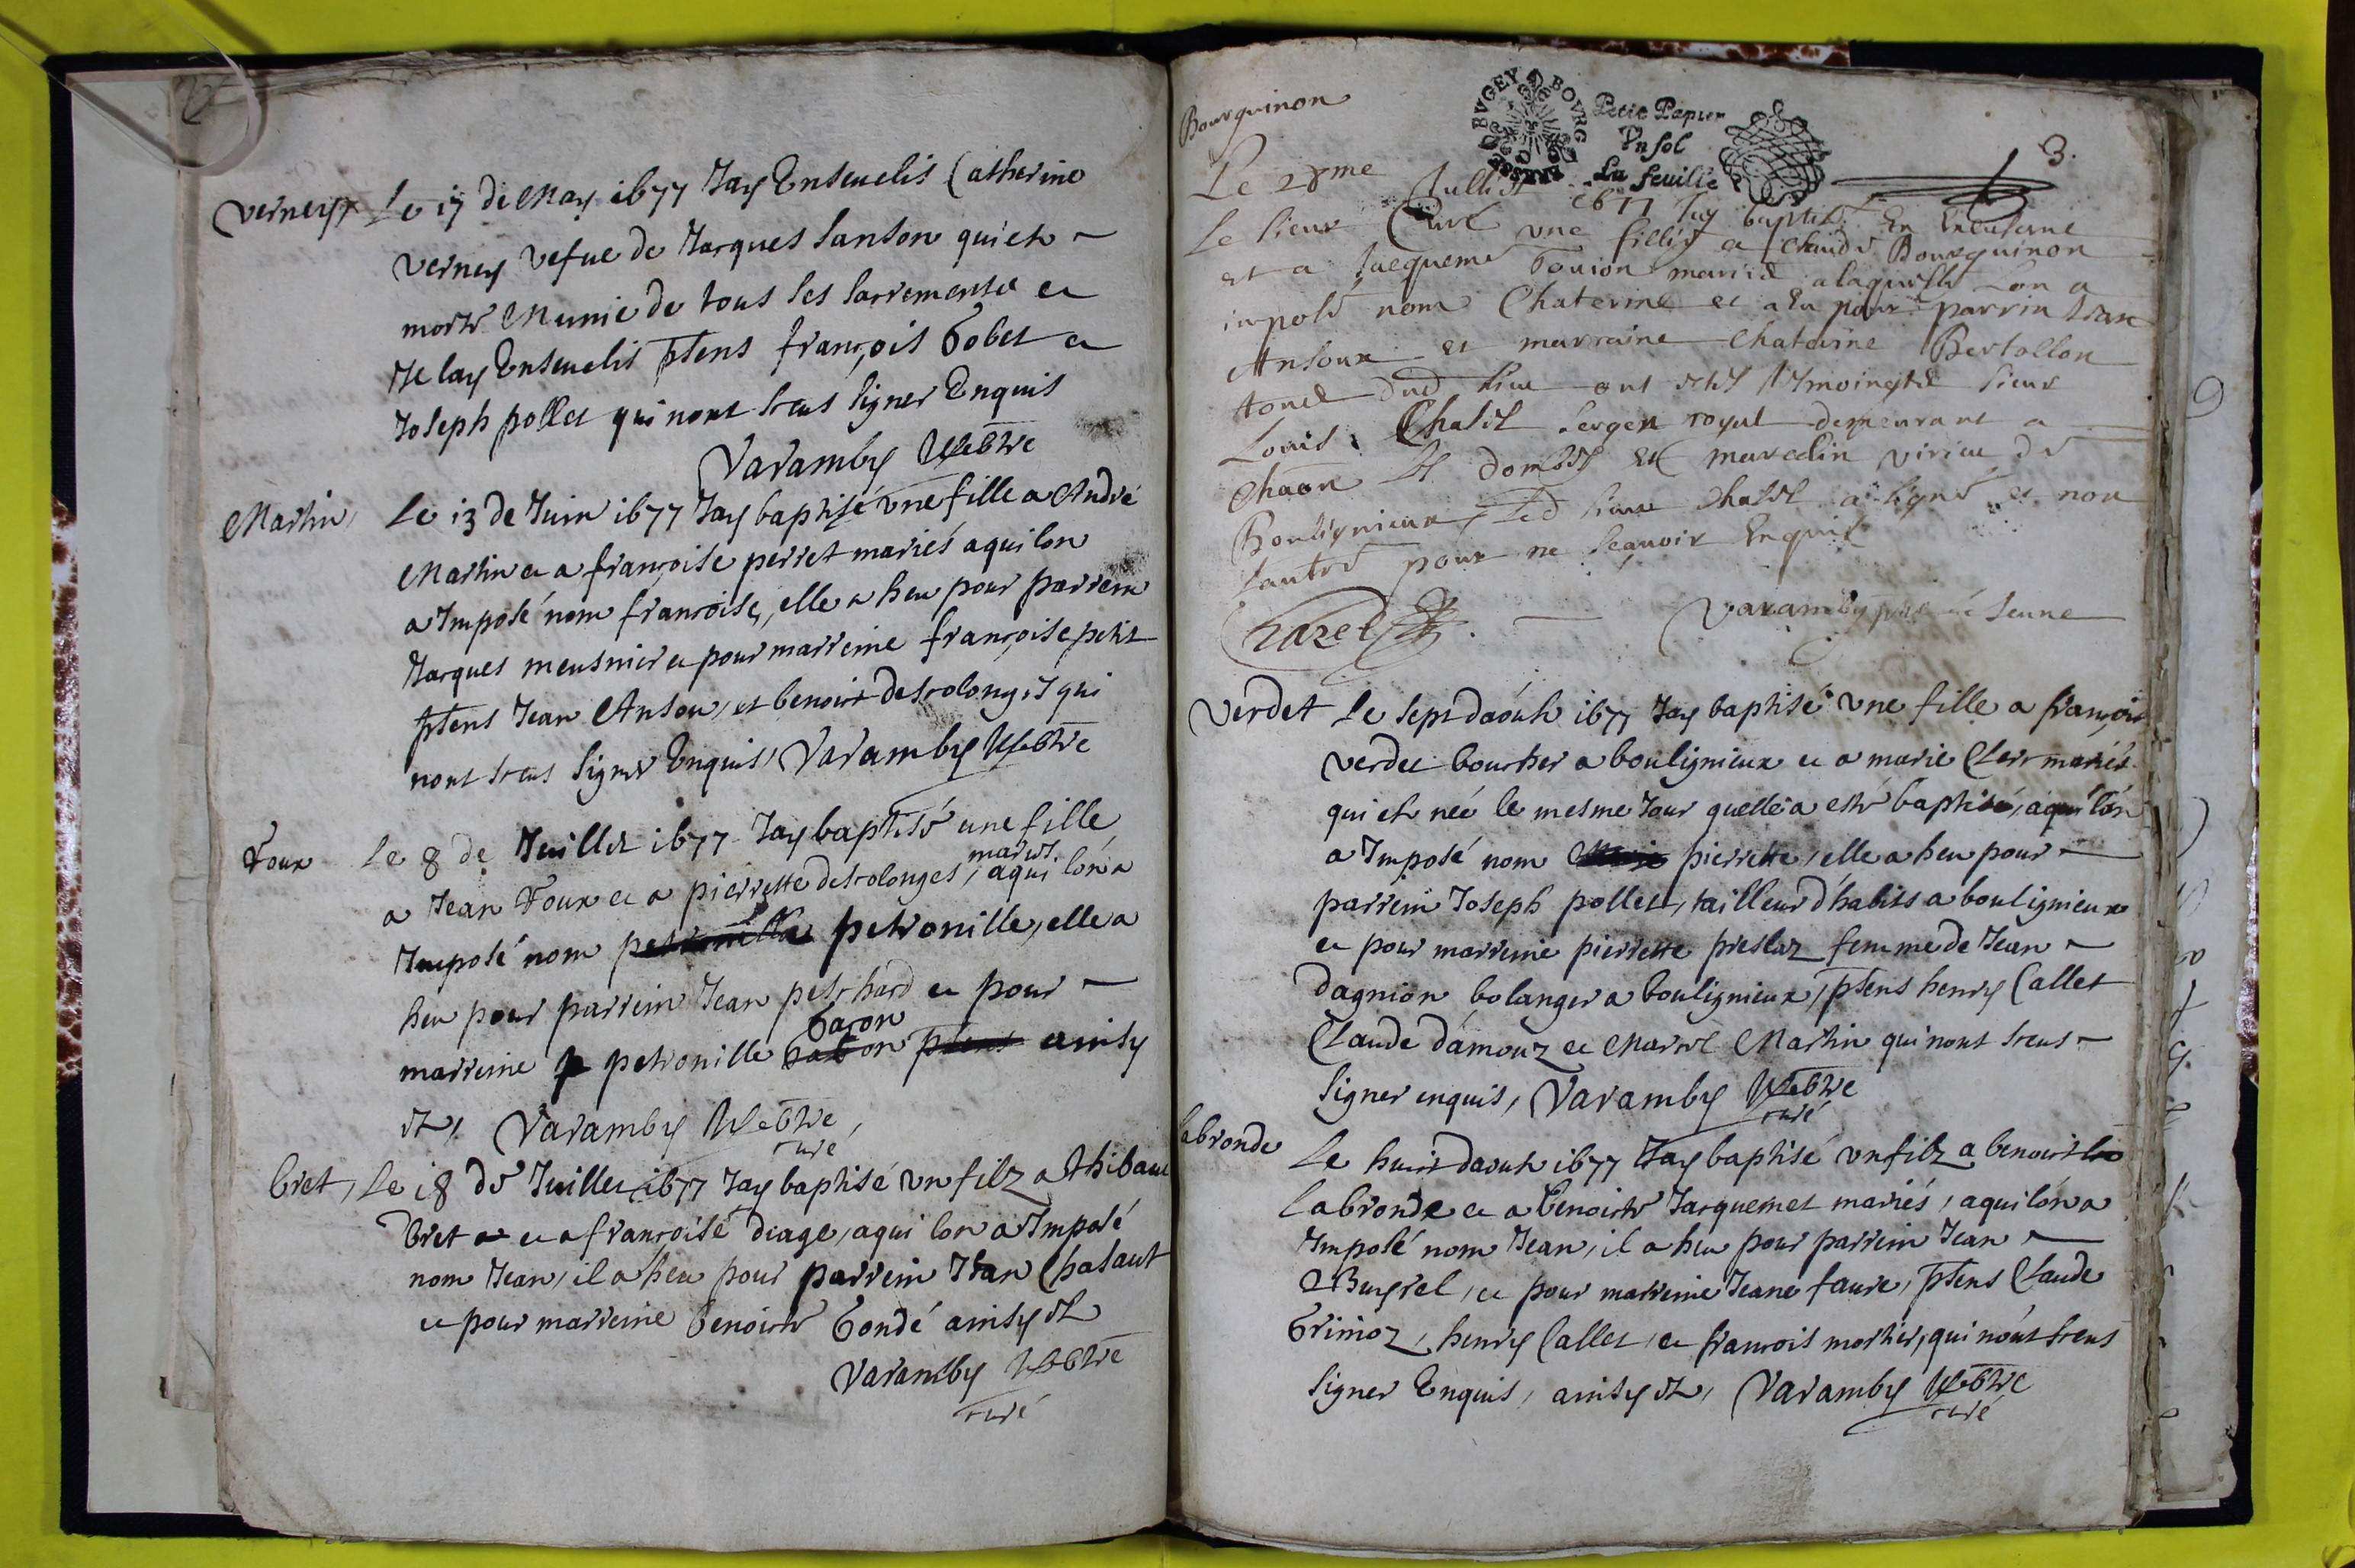 verney
Le 17 de May 1677 Jay Enseuelis Catherine
verney vefue de Jacques Sanson qui est
morte Munie de tous ses sacrements et
Je lay Enseuelis ptens françois Gobet et
Joseph pollet qui nont sceus signer Enquis
Varamby
Martin
Le 13 de Juin 1677 Jay baptisé vne fille a André
Martin et a françoise perret mariés aqui lon
a Imposé nom francoise, elle a heu pour parrein
Jacques meusnier et pour marreine françoise petit
ptens Jean Anson, et benoist descolong, qui
nont sceus signer Enquis, Varamby
Foux
Le 8 de Juillet 1677 Jay baptisé une fille
a Jean Foux et a pierrette descolonges, mariés, aqui lón a
Imposé nom petronille, elle a
heu pour parrein Jean petchard et pour
marreine petronille bacon ainsy
est, Varamby
curé
bret,
Le 18 de Juillet 1677 Jay baptisé vn filz a thibaut
bret et a françoise diage, aqui lon a Imposé
nom Jean, il a heu pour parrein Jean Chasaut
et pour marreine benoiste bondé ainsy est
Varamby
curé
Bourguinon
BVGEY BOVRG BRESSE
Petit Papier
Vn sol
La feuille
3.
Le 28me Jullist 1677 Jay baptisé En
le sieur Curé vne fillie a Claude Bourguinon
et a Jacqueme bouion mariés a laquelle lon a
imposé nom Chaterine et a Eu pour parrin Jean
Ansoux et marraine Chaterine Bertollon
dud lieu ont estés tesmoings le sieur
Louis Chasel sergen royal demeurant a
Chaon et marcelin virieu de
Boulignieux, Led sieur Chasel a signé et non
lautre pour ne sçauoir Enquis
Chazel
Varamby
Verdet
Le sept daoust 1677 Jay baptisé vne fille a françois
verdet boucher a bouligneux et a marie Clerc mariés
qui est neé le mesme Jour quelle a esté baptisé, aqui lón
a Imposé nom pierrette, elle a heu pour
parrein Joseph pollet, tailleur d'habits a bouligneux
et pour marreine pierrette preslaz femme de Jean
dagnion bolanger a bouligneux, ptens henry Callet
Claude damouz et Marcel Martin qui nont sceus
signer enquis, Varamby
curé
labronde
Le huict daoust 1677 Jay baptisé vn filz a benoist
labronde et a benoiste Jacquemet mariés, aqui lón a
Imposé nom Jean, il a heu pour parrein Jean
et pour marreine Jeane faure, ptens Claude
brimoz, henry Callet, et francois mortier, qui nónt sceus
signer Enquis, ainsy est, Varamby
curé